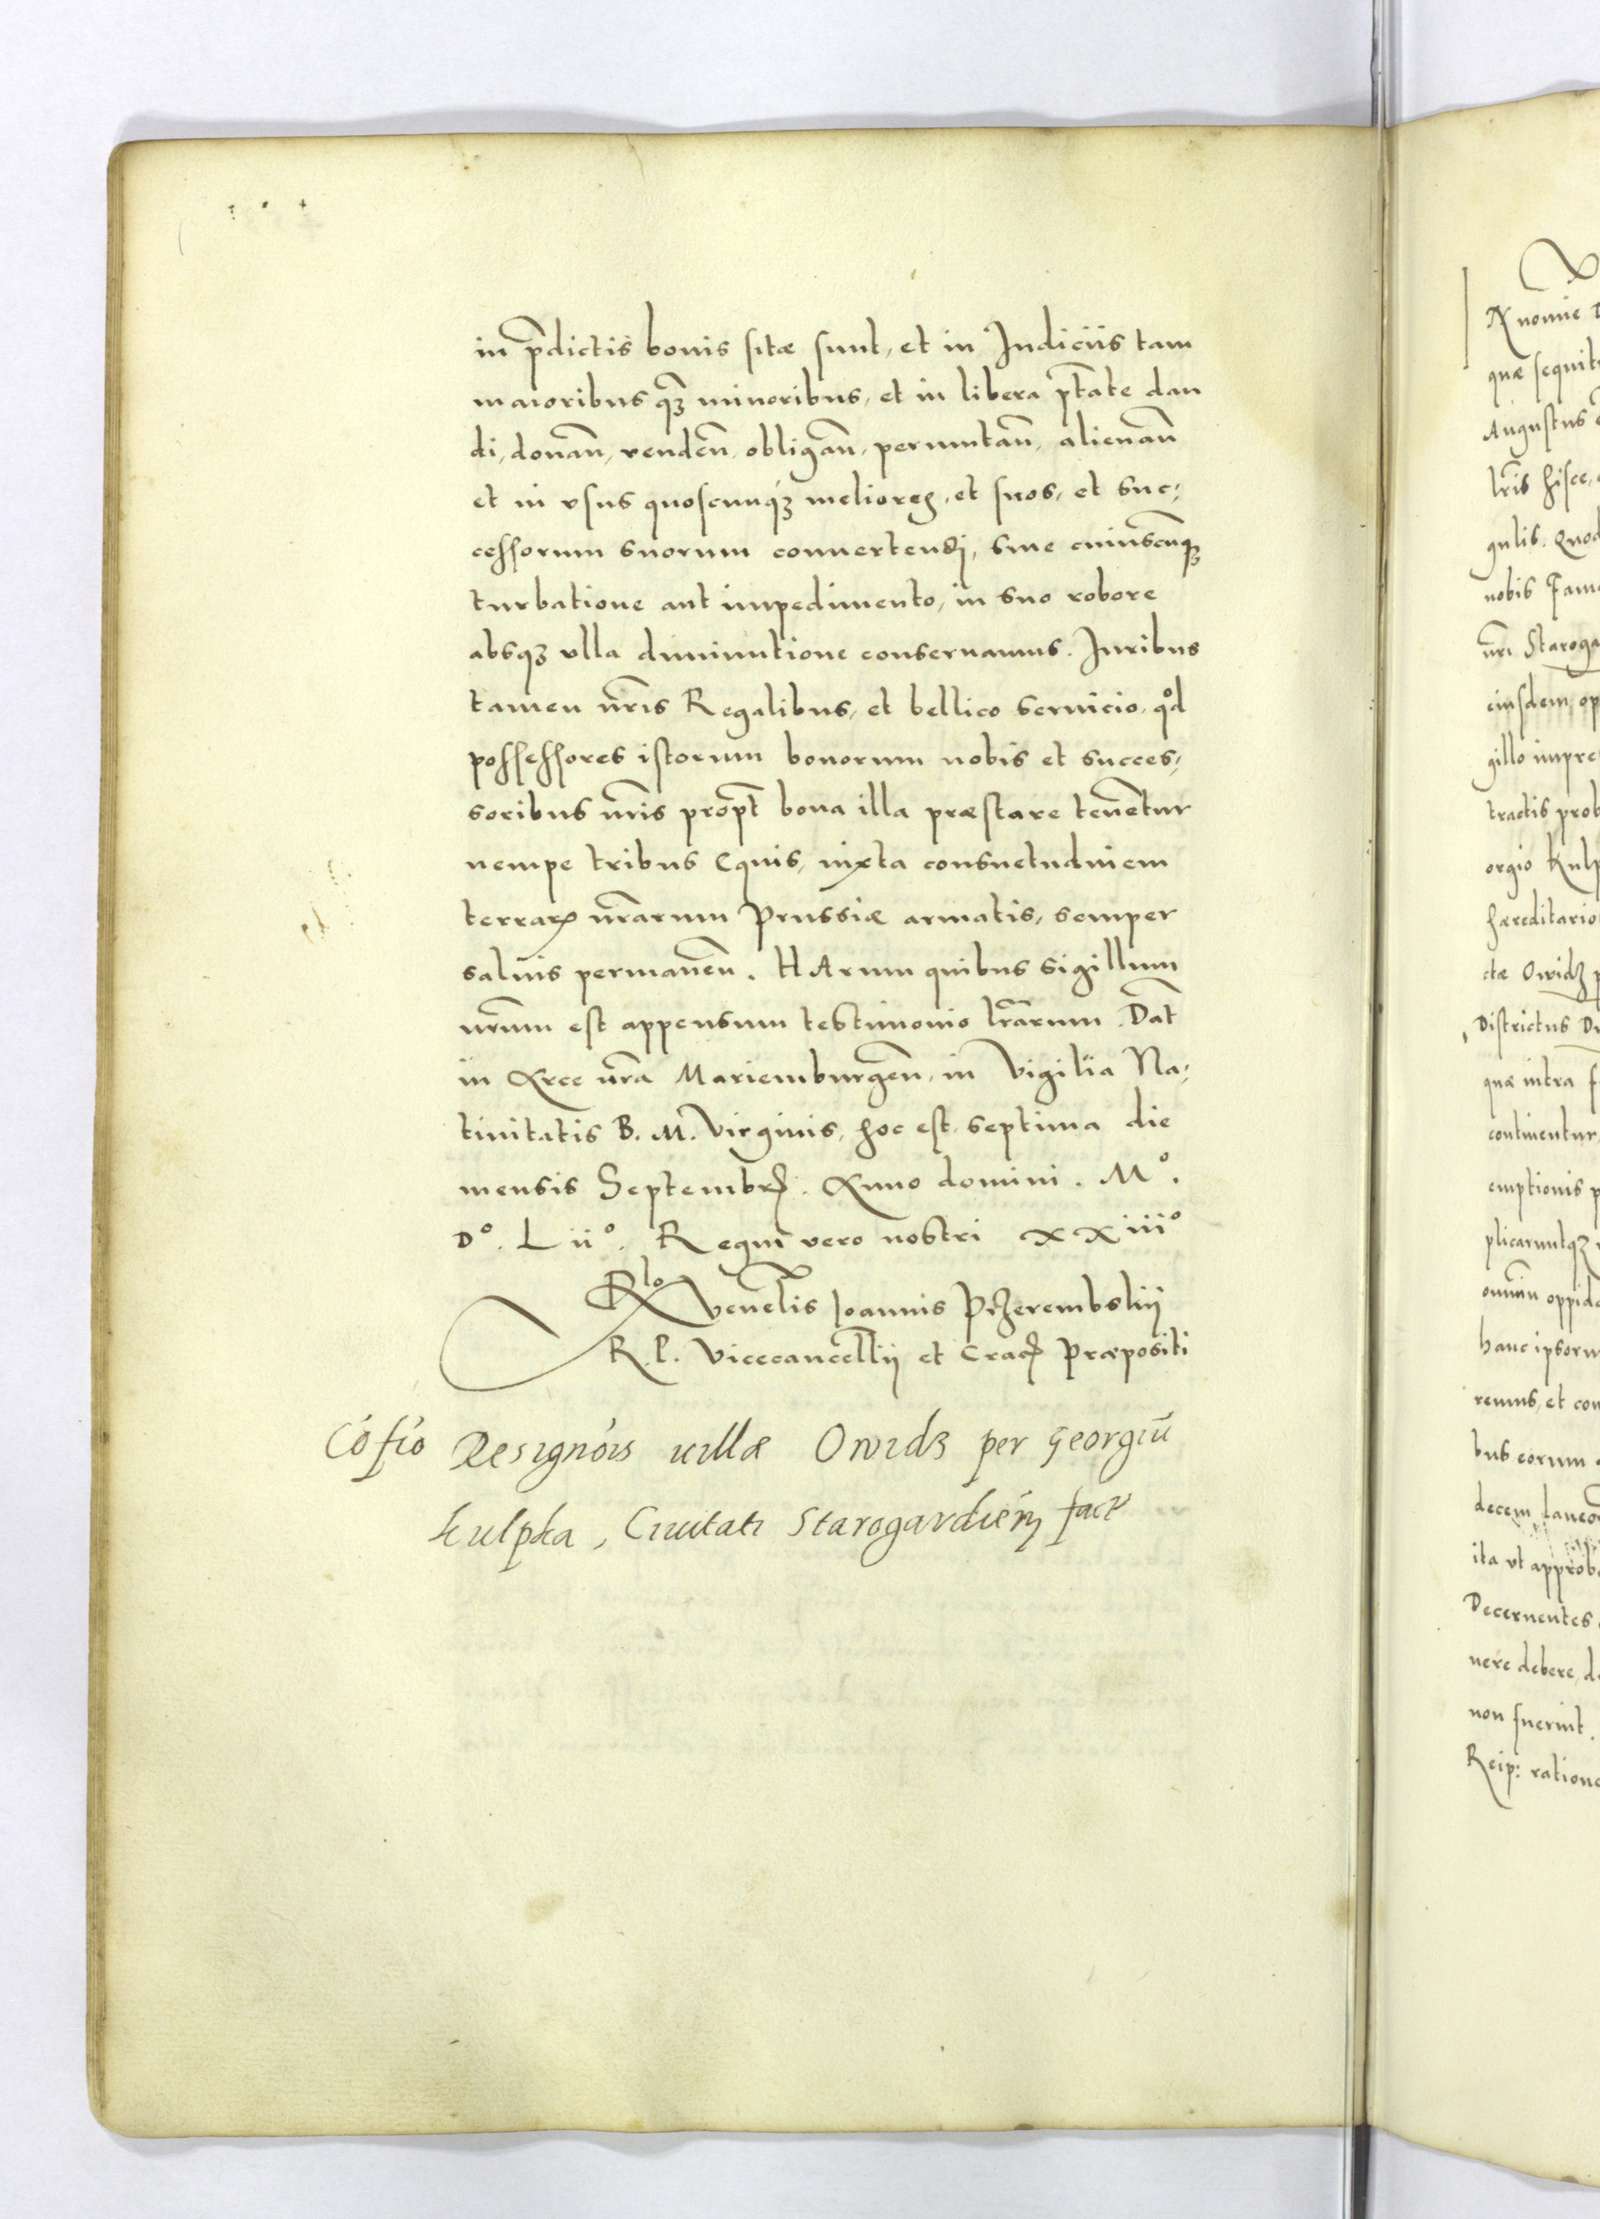 in p̄dictis bonis sitæ sunt, et in Iudiciis tam
maioribus qꝫ minoribus, et in libera ptāte dan
di, donan̄, venden̄, obligan̄, permutan̄, alienan̄
et in vsus quoscunqꝫ meliores, et suos, et suc⸗
cessorum suorum conuertendi, sine cuiuscūqꝫ
turbatione aut impedimento, in suo robore
absqꝫ vlla diminutione conseruamus. Iuribus
tamen nr̄is Regalibus, et bellico seruicio, qd
possessores istorum bonorum nobis et succes⸗
soribus nr̄is propt̄ bona illa præstare tenētur
nempe tribus Equis, iuxta consuetudinem
terraꝝ nr̄arum Prussiæ armatis, semper
saluis permanen̄. HArum quibus sigillum
nr̄um est appensum testimonio lr̄arum. Dat̄
in Arce nr̄a Mariemburgen̄, in Vigilia Na⸗
tiuitatis B. M. Virginis, hoc est, septima die
mensis Septembr̄. Anno domini. M°.
D°. Lii°. Regni vero nostri xxiii°
Rlo venēlis Ioannis Przerembskij
R. P. Vicecancellij et Crac̄ Præpositi
Cōfio Resignōis uillæ Owidz per Georgiū
kulpka, Ciuitati Starogardien̄ fact
N nomine D
quæ sequit
Augustus
lr̄is hisce,
gulis. Quod
nobis Fam
nr̄i Staroga
eiusdem op
gillo impre
tractis prob
orgio Kulp
hæreditario
ctæ Owidz p
Districtus D
quæ intra f
continentur,
emptionis p
plicaruntqꝫ
omniū oppid
hanc ipsoru
remus, et con
bus eorum
decem laneo
ita vt approb
Decernentes
nere debere, d
non fuerint.
Reip: ratione